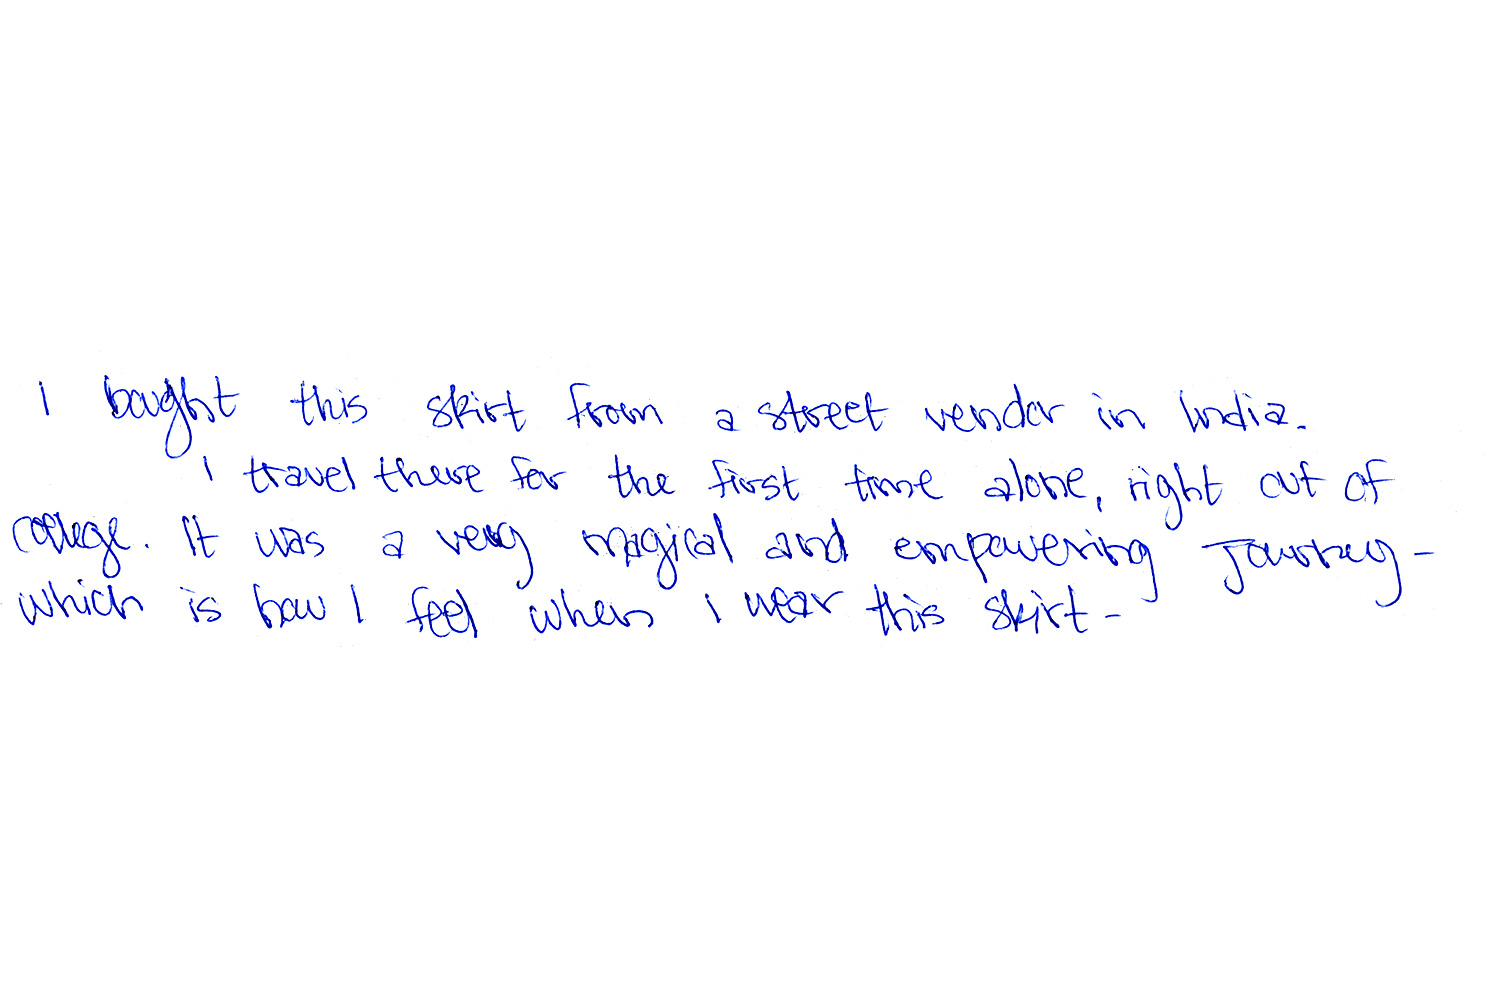 I bought this skirt from a street vendor in India.
I travel there for the first time alone, right out of
college. It was a very magical and empowering journey -
which is how I feel when i wear this skirt -